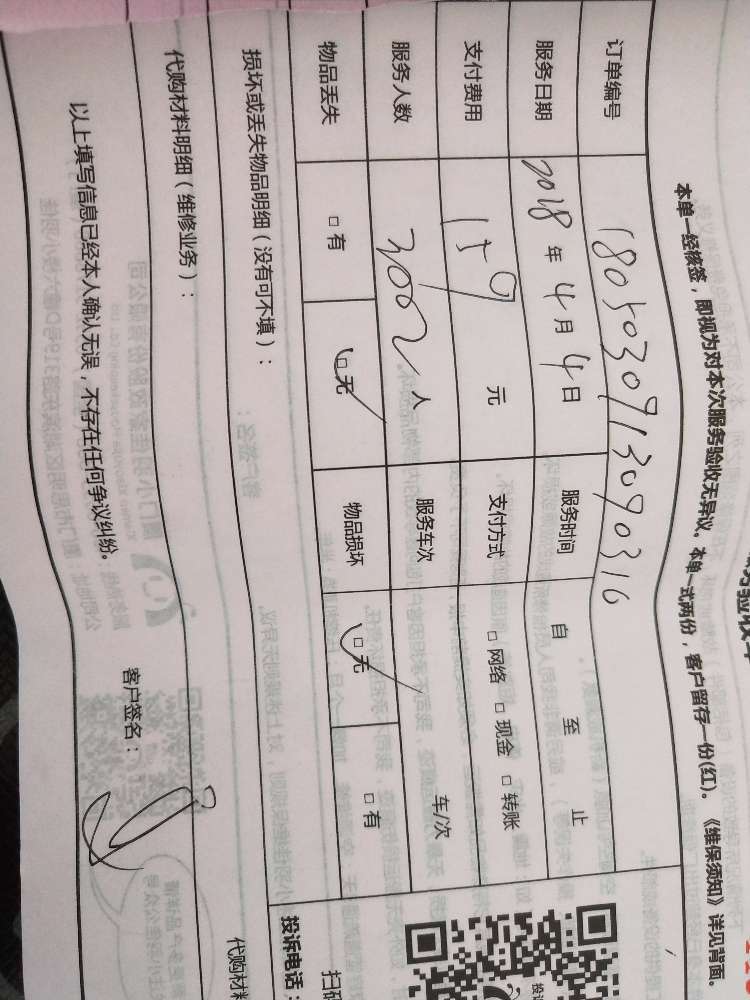 务验收单
本单一经核签，即视为对本次服务验收无异议。本单一式两份，客户留存一份(红)。《维保须知》详见背面。
订单编号 1805030913090316
服务日期 2018年4月4日 服务时间 自 至 止
支付费用 159 元 支付方式 □网络 □现金 □转账
服务人数 人 服务车次 车/次
物品丢失 □有 □无 物品损坏 □无 □有
损坏或丢失物品明细（没有可不填）：
投诉电话：
代购材料明细（维修业务）：
代购材料
以上填写信息已经本人确认无误，不存在任何争议纠纷。
客户签名：